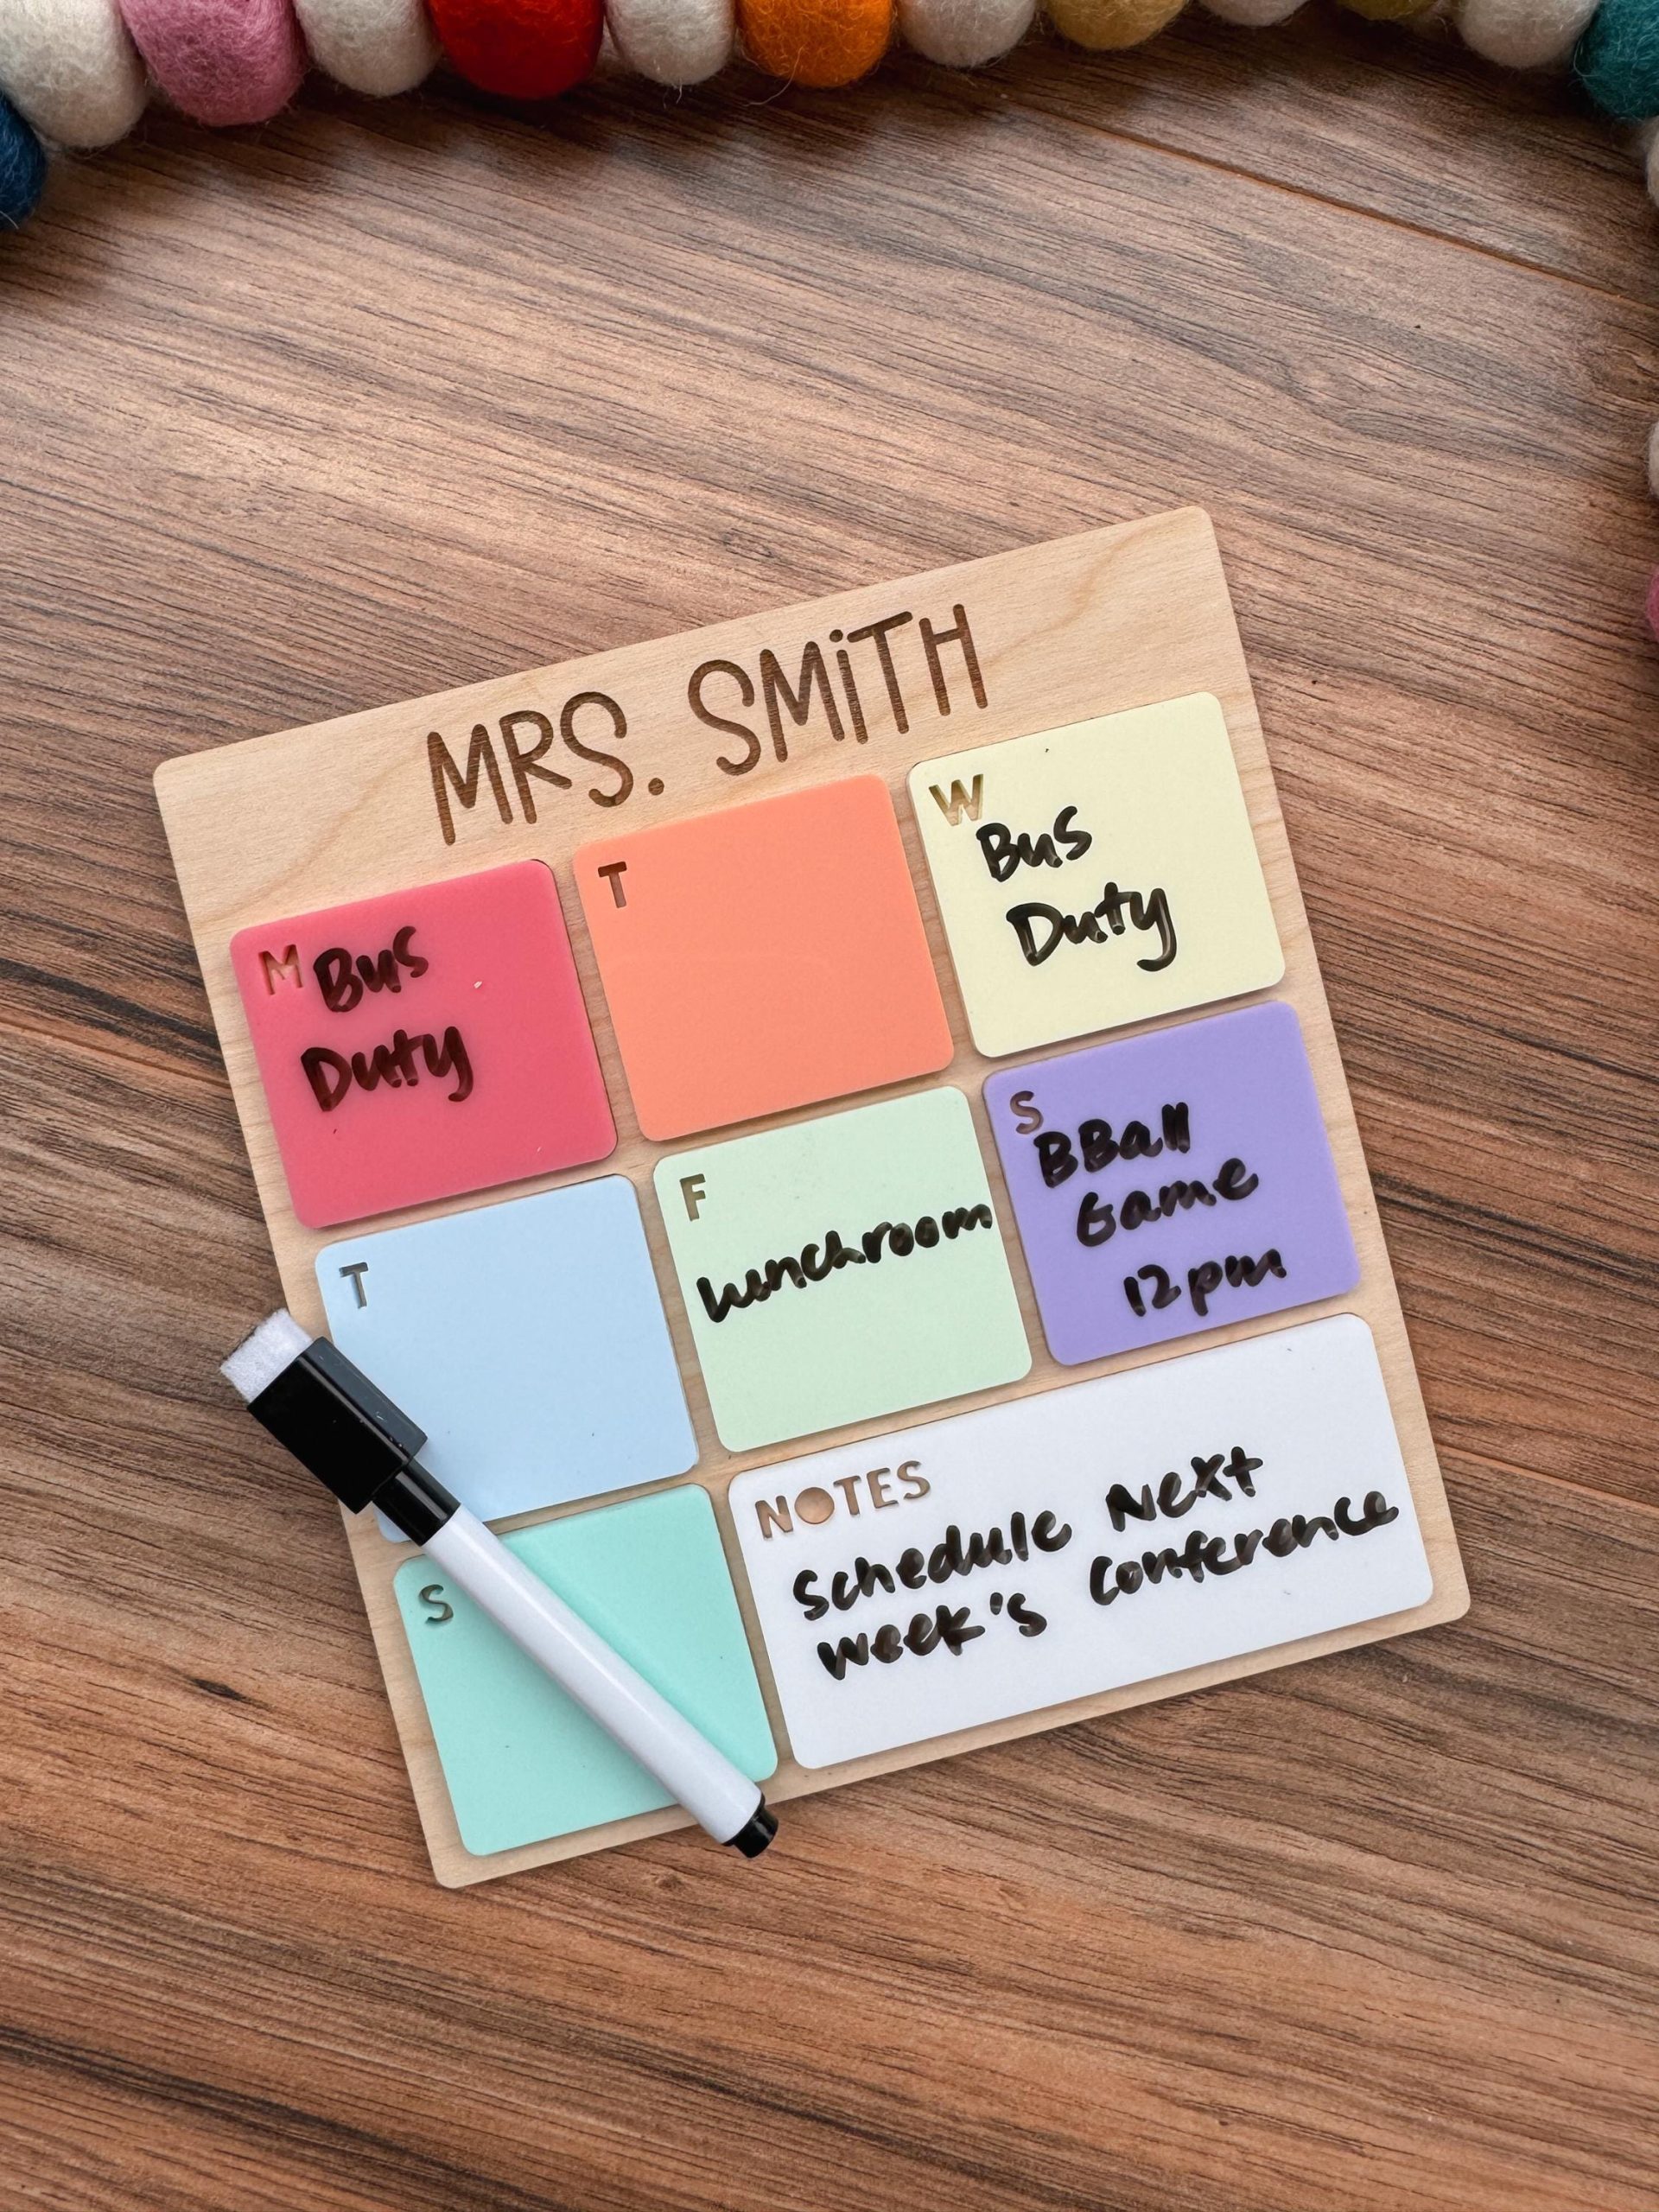 MRS. SMiTH
M Bus
Duty
T
W
Bus
Duty
T
F
lunchroom
S
BBall
Game
12pm
S
NOTES
Schedule Next
week's conference